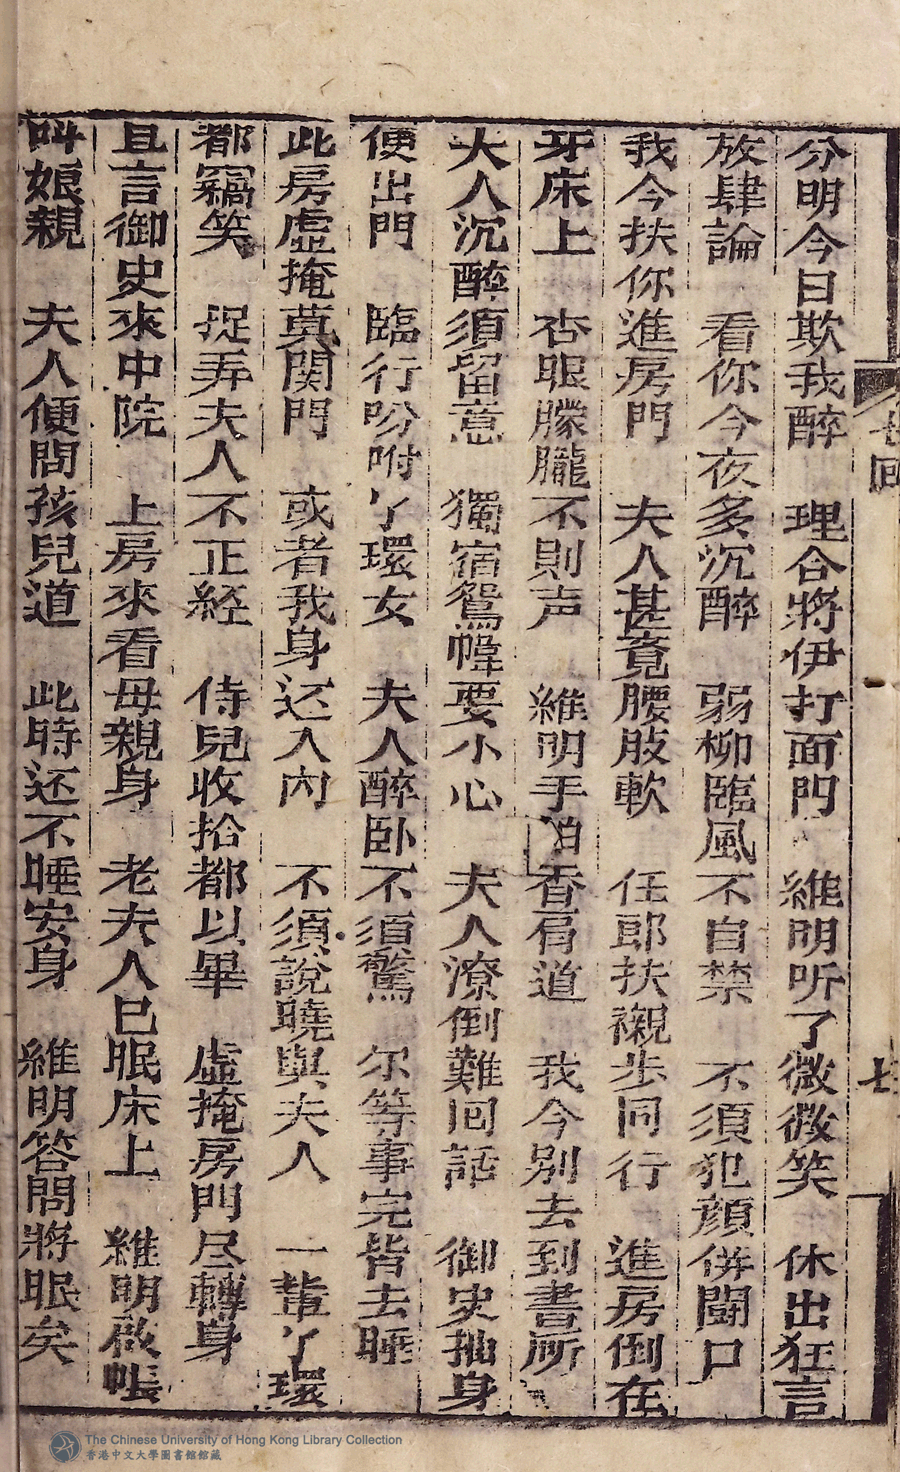 分明今日欺我醉　理合將伊打面門　維明听了微微笑　休出狂言
放肆論　看你今夜多沉醉　弱柳臨風不自禁　不須犯顔併鬪口
我今扶你進房門　夫人甚竟腰肢軟　任郎扶襯步同行　進房倒在
牙床上　杏眼朦朧不則声　維明手拍香肩道　我今别去到書所
大人沉醉須留意　獨宿鴛幃要小心　夫人潦倒難回話　御史抽身
便出門　臨行吩咐了環女　夫人醉卧不須驚　尔等事完皆去睡
此房虛掩莫関門　或者我身还入內　不須說曉與夫人　一輩了環
都竊笑　捉弄夫人不正経　侍兒收拾都以畢　虛掩房門尽轉身
且言御史來中院　上房來看母親身　老夫人已眠床上　維明啟帳
叫娘親　夫人便問孩兒道　此時还不睡安身　維明答問將眠矣
七
The Chinese University of Hong Kong Library Collection
香港中文大學圖書館館藏